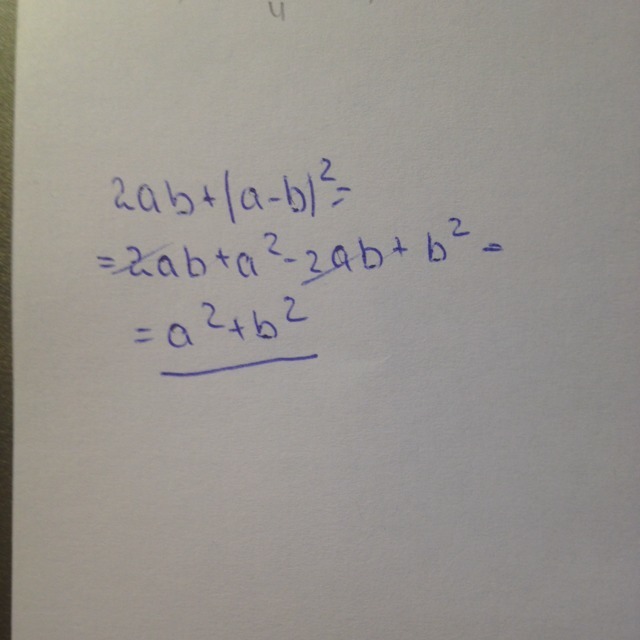 2ab+(a-b)²=
=2ab+a²-2ab+b²=
=a²+b²